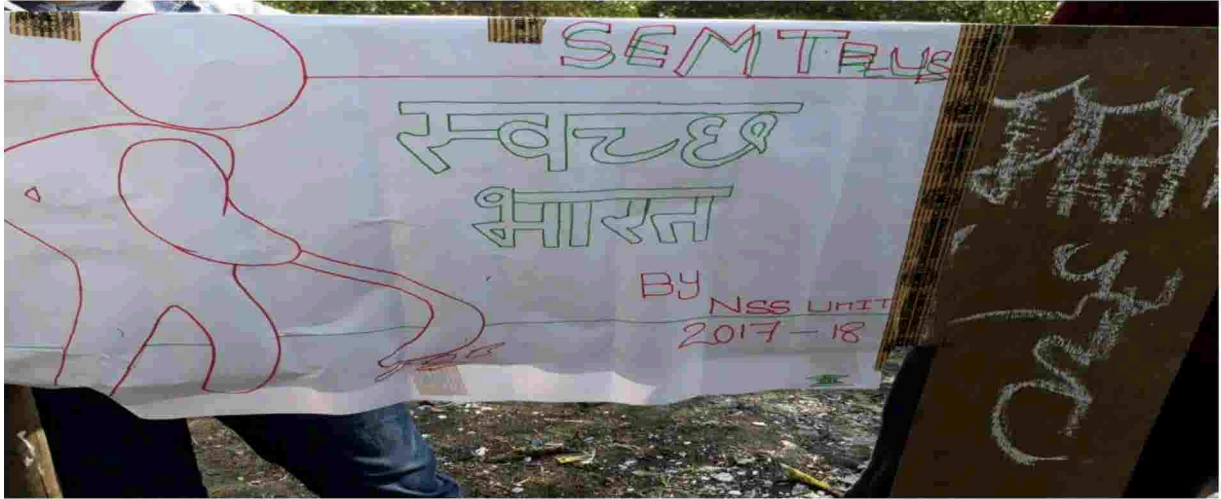 SEM TELUS
स्वच्छ
भारत
BY
NSS UNIT
2017-18